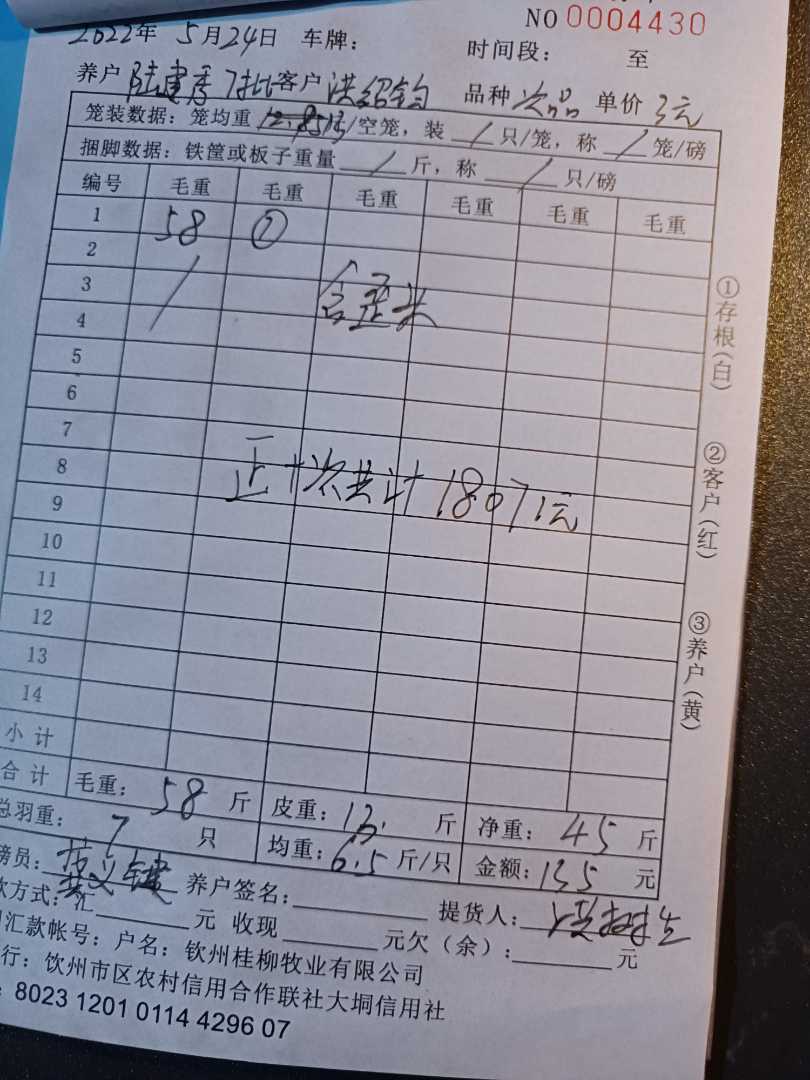 NO 0004430
2022年 5月24日 车牌: 时间段: 至
养户 陆建秀 7批 客户 洪绍钧 品种 次品 单价 3元
笼装数据: 笼均重 12.85斤/空笼, 装 / 只/笼, 称 / 笼/磅
捆脚数据: 铁筐或板子重量 / 斤, 称 / 只/磅
编号 毛重 毛重 毛重 毛重 毛重 毛重
1 58 ⑦
2
3 / 含歪头
4
5
6
7
8 正+次共计1807元
9
10
11
12
13
14
小计
合计 毛重: 58 斤 皮重: 13. 斤 净重: 45 斤
总羽重: 7 只 均重: 6.5 斤/只 金额: 135 元
磅员: 养户签名: 提货人:
款方式: 汇 元 收现 元欠(余): 元
汇款帐号: 户名: 钦州桂柳牧业有限公司
行: 钦州市区农村信用合作联社大垌信用社
: 8023 1201 0114 4296 07
①存根(白)
②客户(红)
③养户(黄)